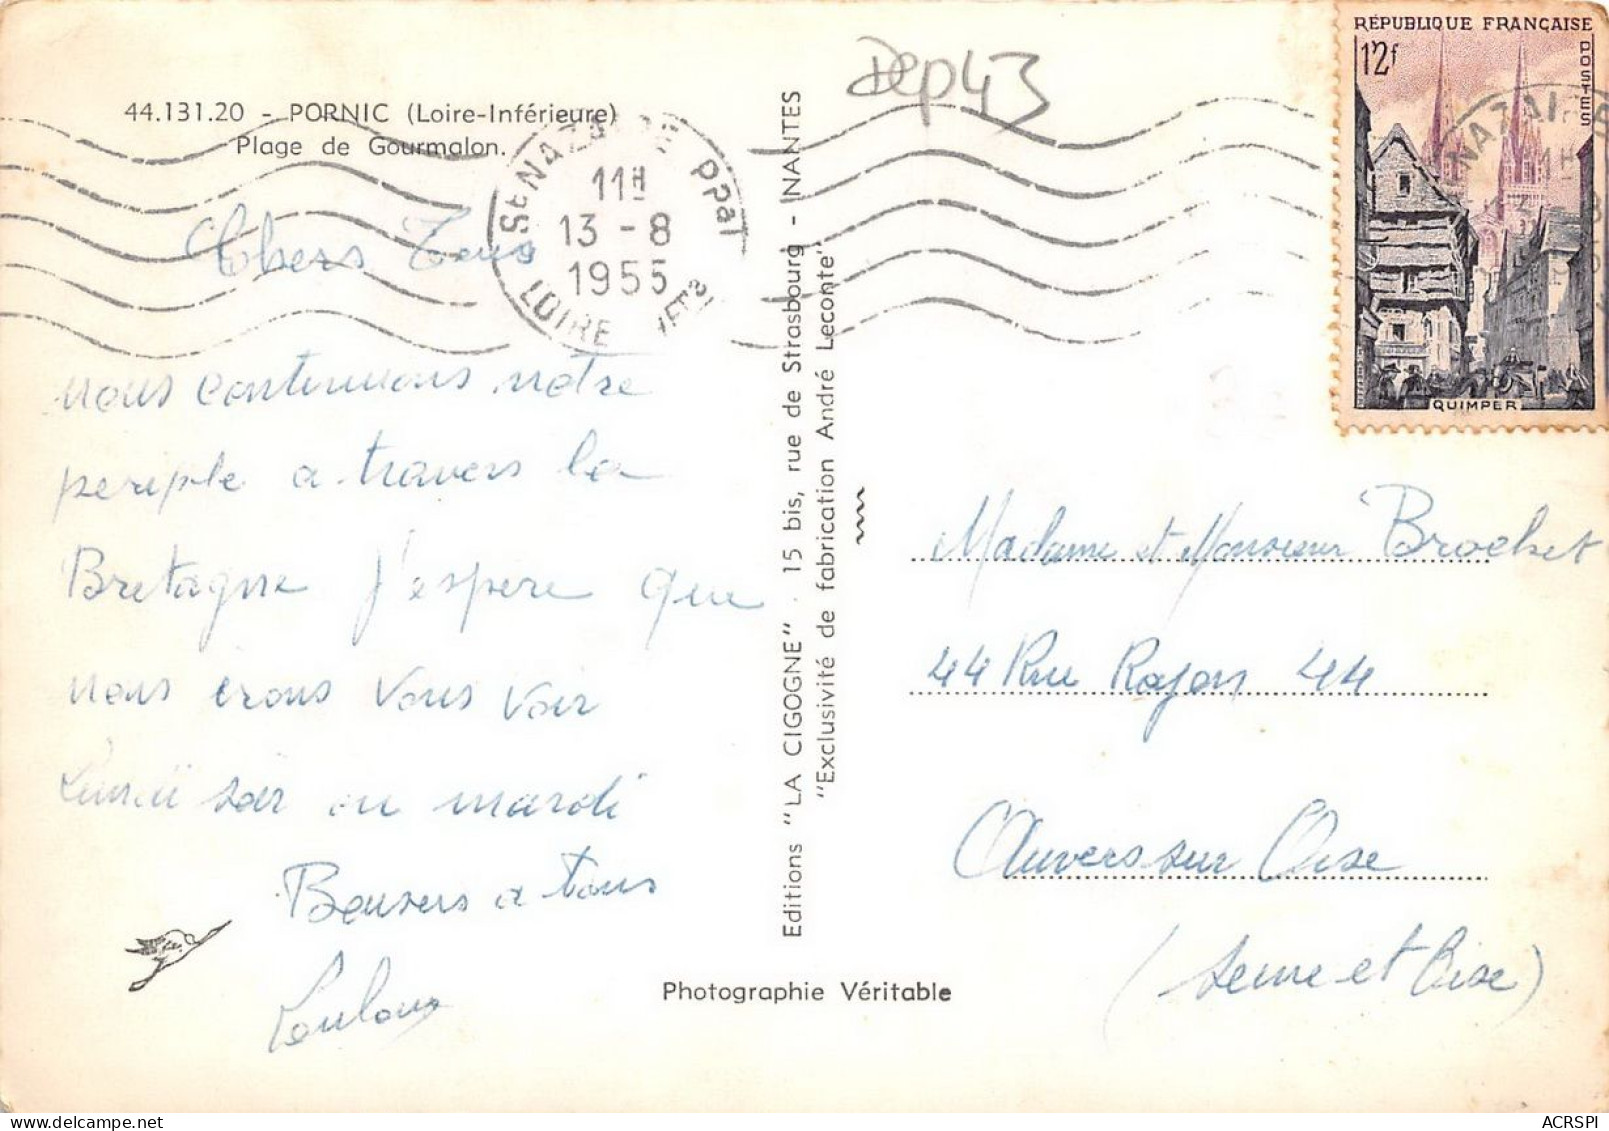 44.131.20 - PORNIC (Loire-Inférieure)
Plage de Gourmalon.
Dep 43
RÉPUBLIQUE FRANÇAISE
12f
POSTES
QUIMPER
St NAZAIRE PPAL
11H
13 - 8
1955
LOIRE INFre
Chers Tous
nous continuons notre
periple a travers la
Bretagne J'espere que
nous irons vous voir
Lundi soir ou mardi
Bousers a tous
Loulou
Editions "LA CIGOGNE" . 15 bis, rue de Strasbourg - NANTES
"Exclusivité de fabrication André Leconte"
Madame et Monsieur Brochet
44 Rue Rajon 44
Auvers sur Oise
(Seine et Oise)
Photographie Véritable
ACRSPI